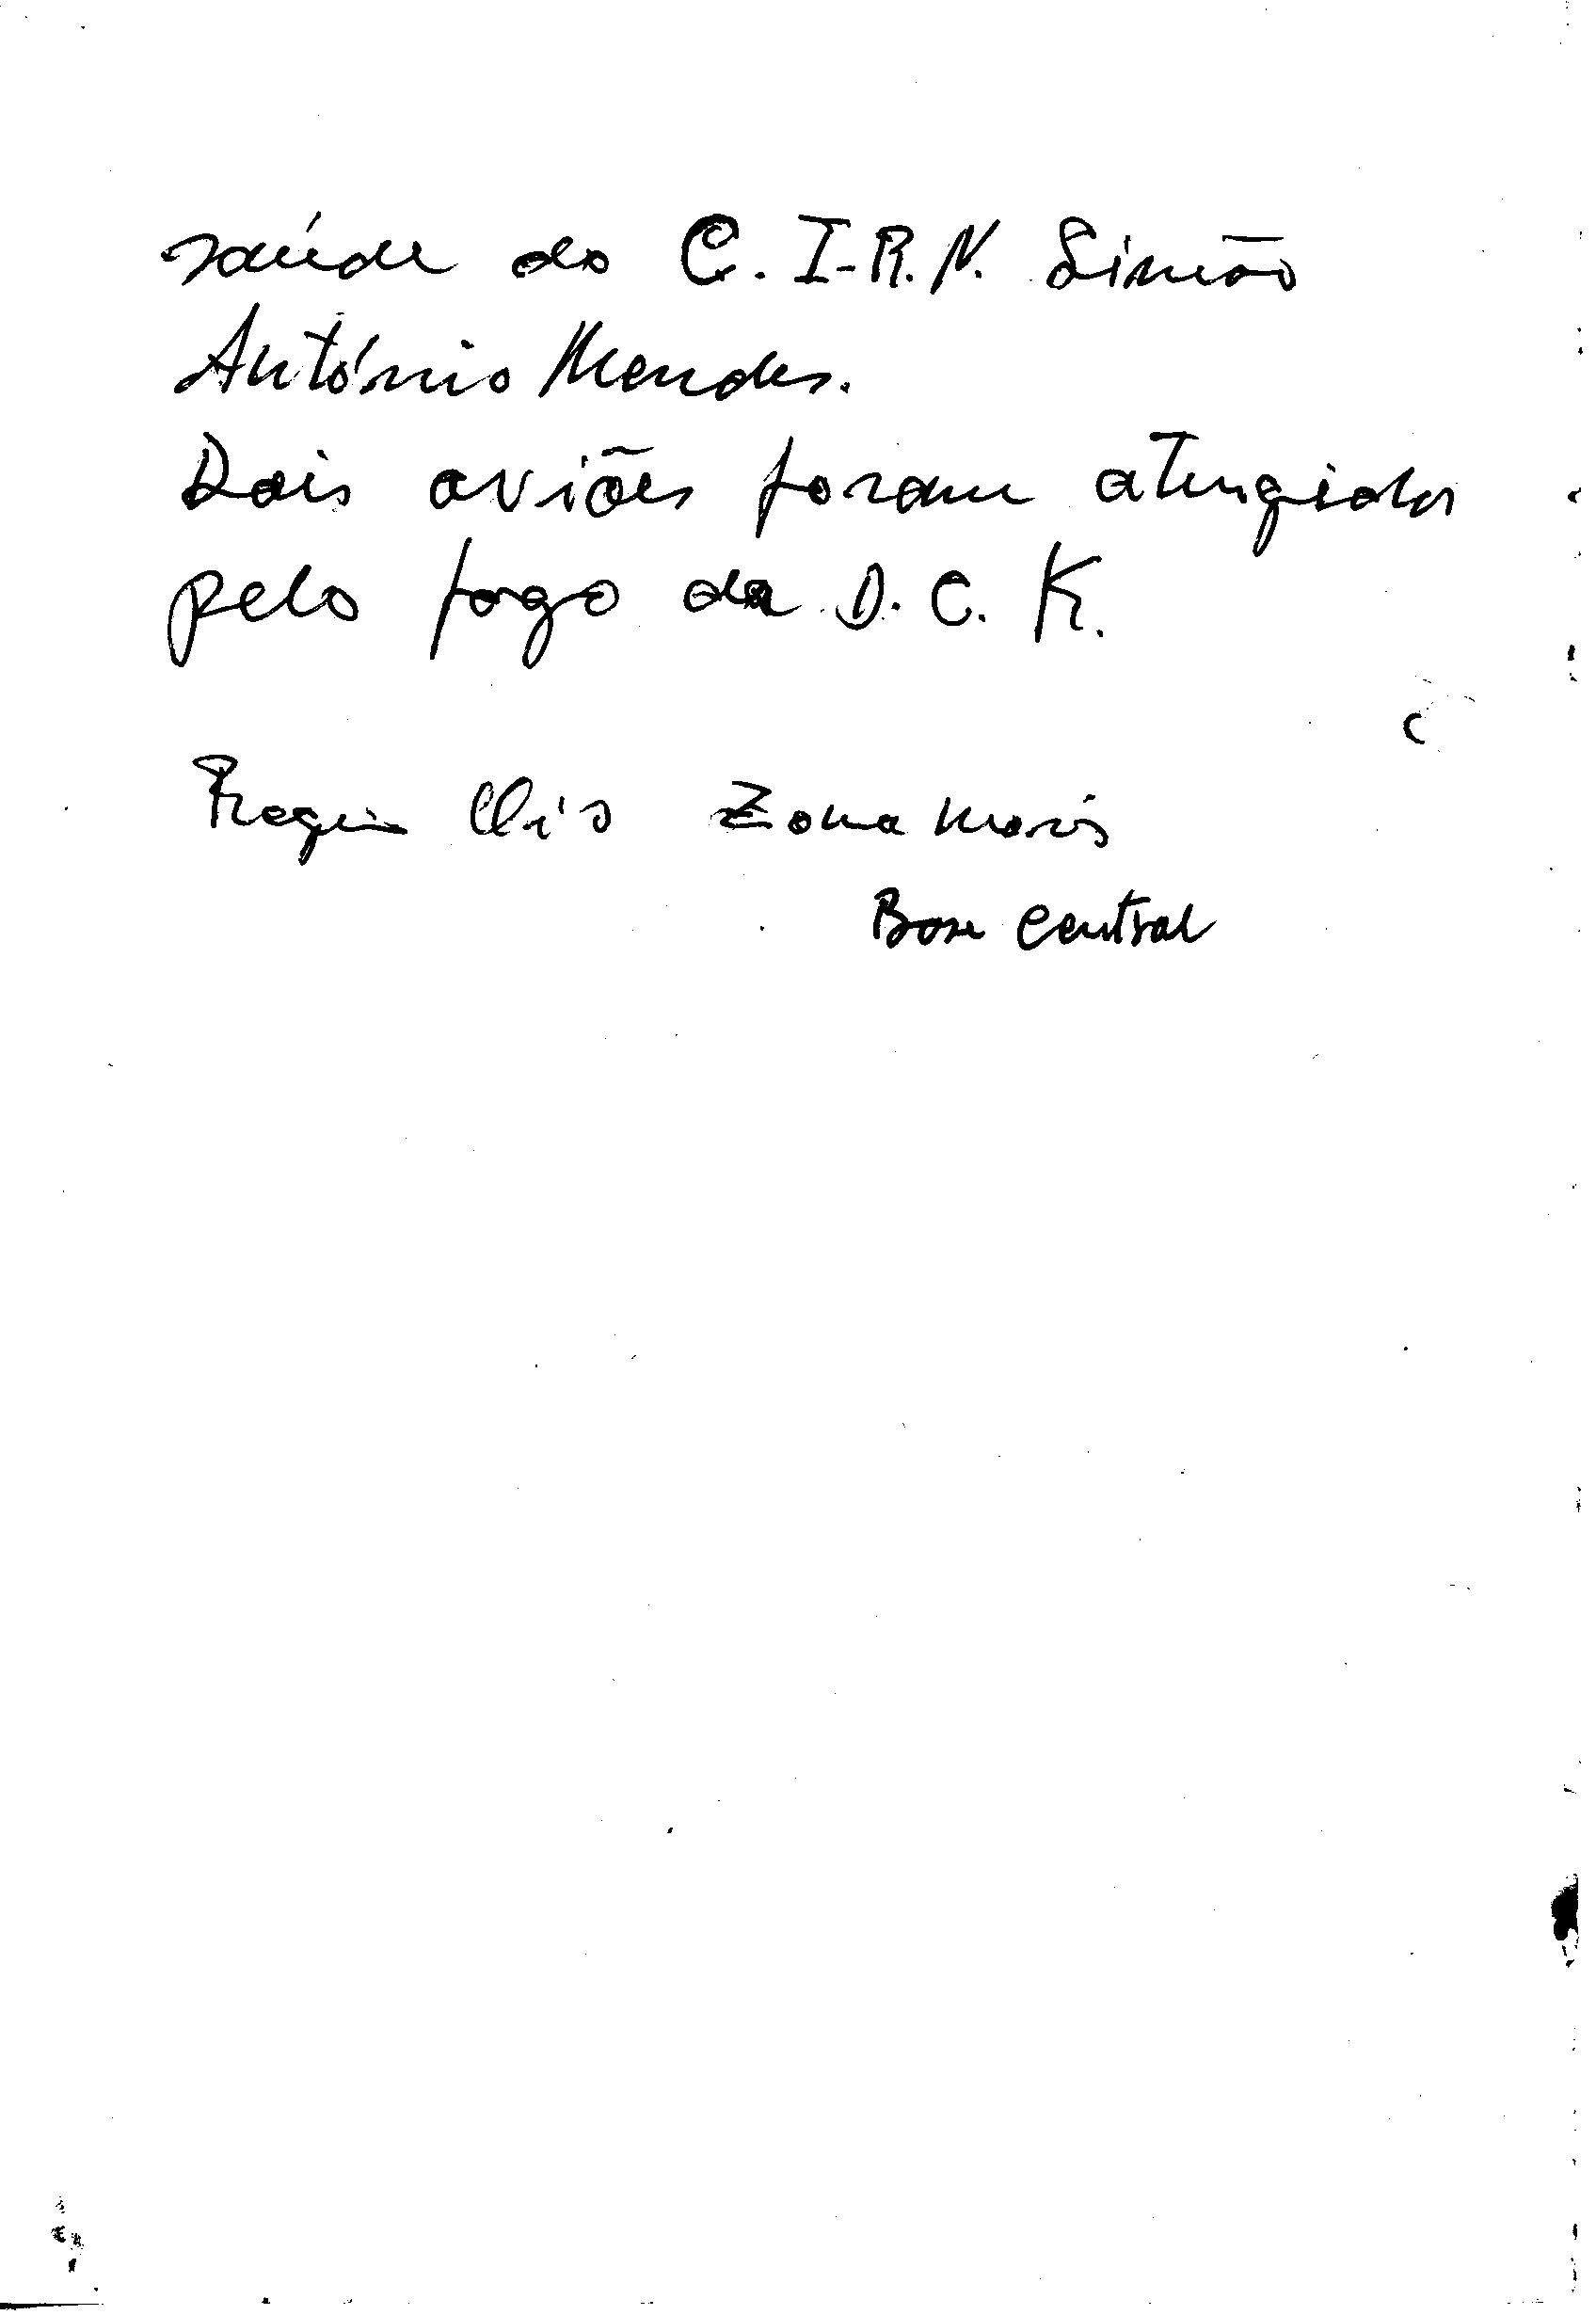 saúde do C. I-R.N. Simão
António Mendes.
Dois aviões foram atingidos
pelo fogo da D. C. K.
Zona
Base Central